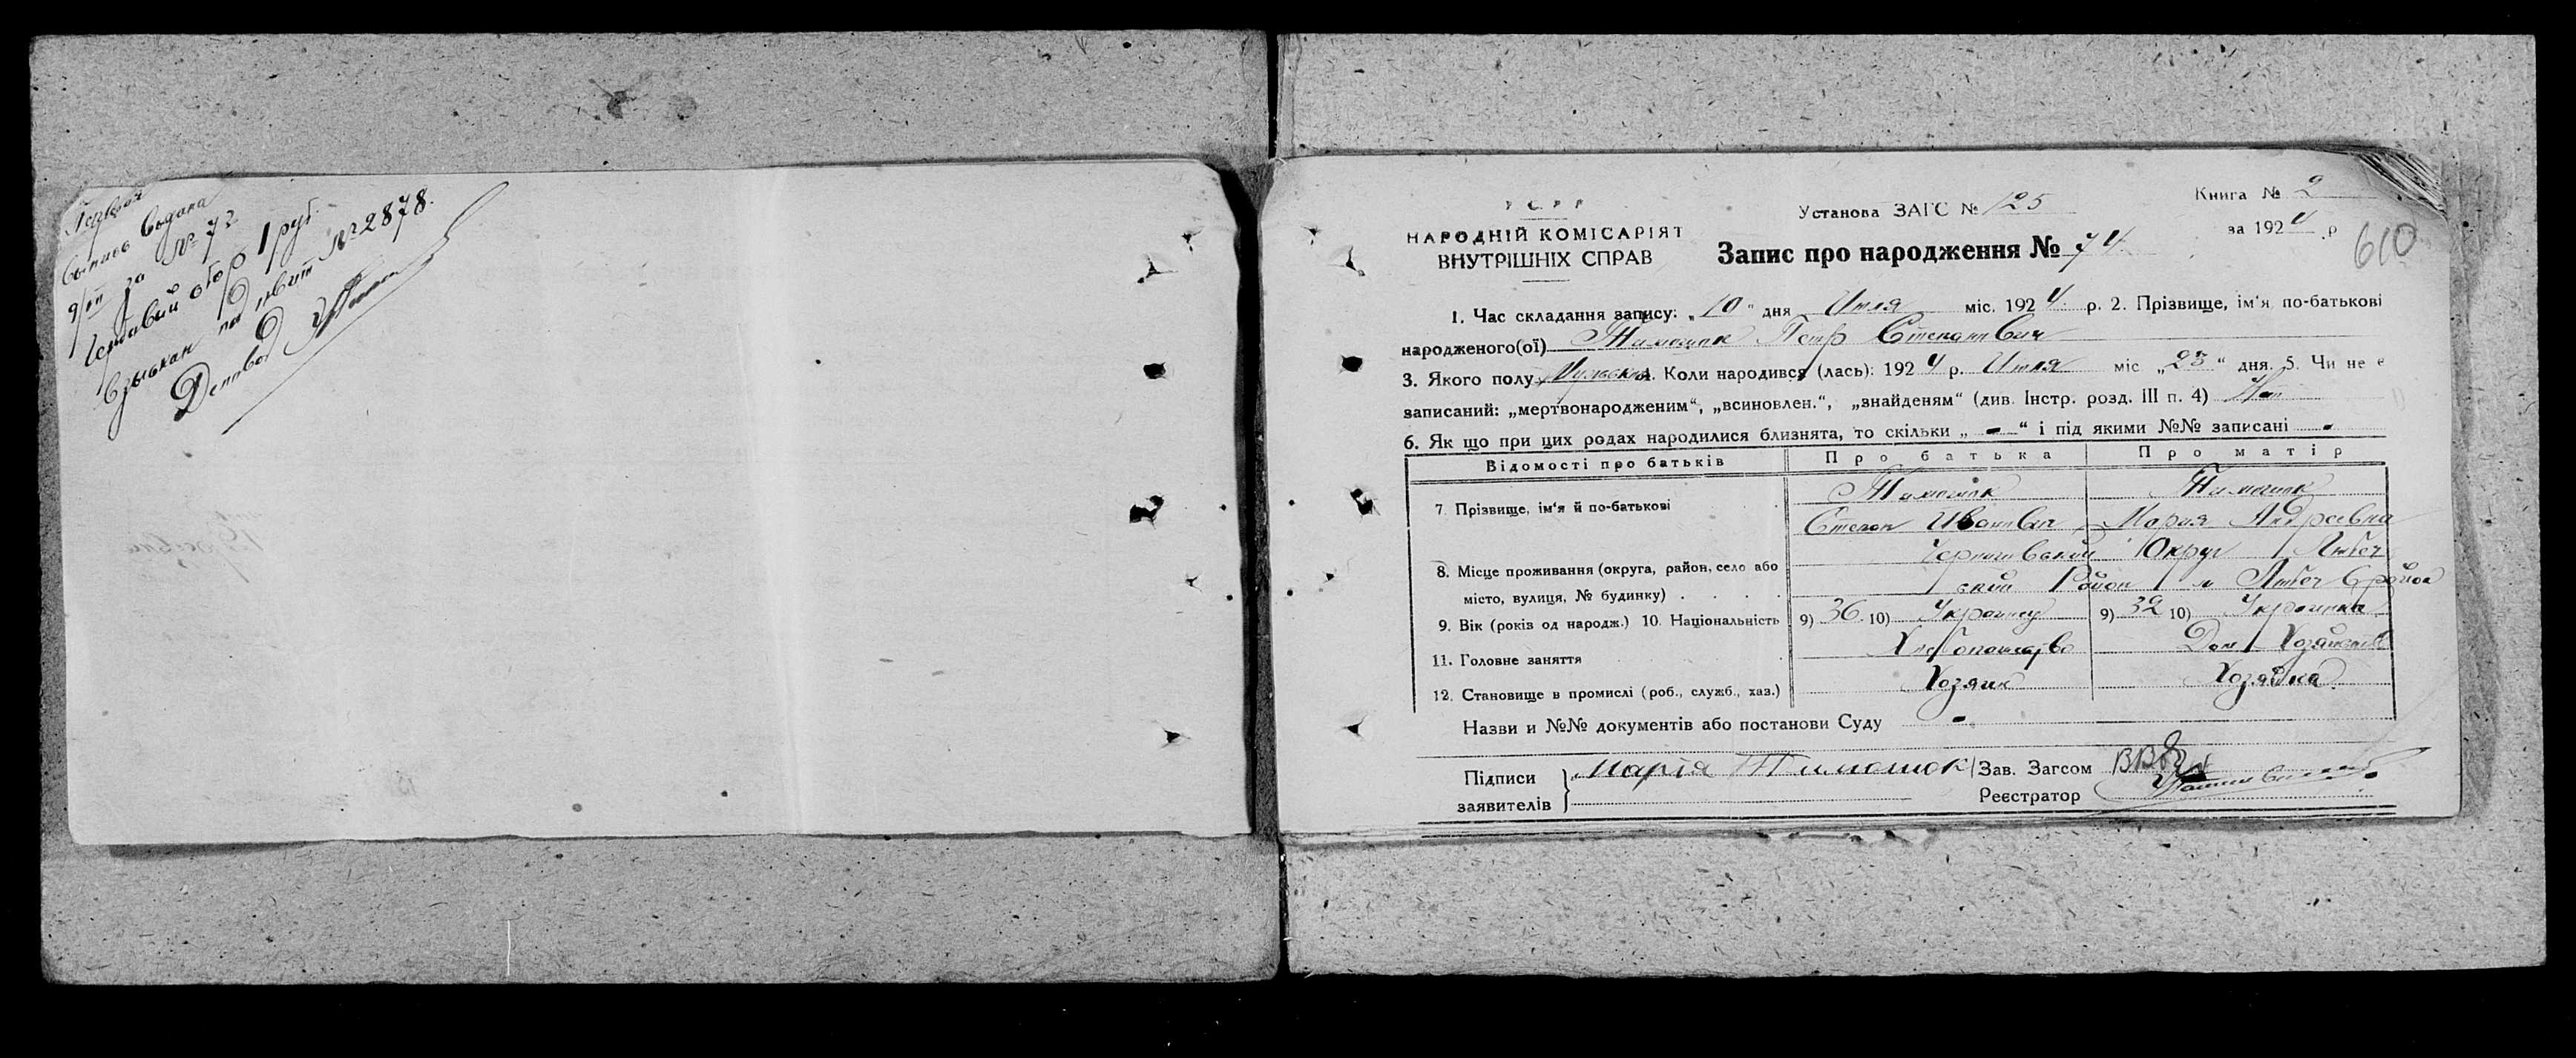 выпись выдана
за № 72
гербовый сбор 1 руб.
взыскан по квит №2878.
У С Р Р
НАРОДНІЙ КОМІСАРІЯТ
ВНУТРІШНІХ СПРАВ
Установа ЗАГС № 125
Книга № 2
за 1924 р
610
Запис про народження № 74
1. Час складання запису: „10“ дня Июля міс. 1924 р. 2. Прізвище, ім'я, по-батькові
народженого(ої) Тимошок Петр Степанович
3. Якого полу Мужской 4. Коли народився (лась): 1924 р. Июля міс „23“ дня. 5. Чи не є
записаний: „мертвонародженим“, „всиновлен.“, „знайденям“ (див. Інстр. розд. III п. 4)
6. Як що при цих родах народилися близнята, то скільки „ - “ і під якими №№ записані -
Відомості про батьків Про батька Про матір
7. Прізвище, ім'я й по-батькові Тимошок Тимошок
Степан Иванович Мария Андреевна
8. Місце проживання (округа, район, село або Черниговский Округ Любеч
місто, вулиця, № будинку) ский Район м Любеч
9. Вік (років од народж.) 10. Національність 9) 36 10) Украинец 9) 32 10) Украинка
11. Головне заняття Хлебопашество Дом Хозяйство
12. Становище в промислі (роб., служб., хаз.) Хозяин Хозяйка
Назви и №№ документів або постанови Суду -
Підписи Марія Тимошок Зав. Загсом
заявителів Реєстратор